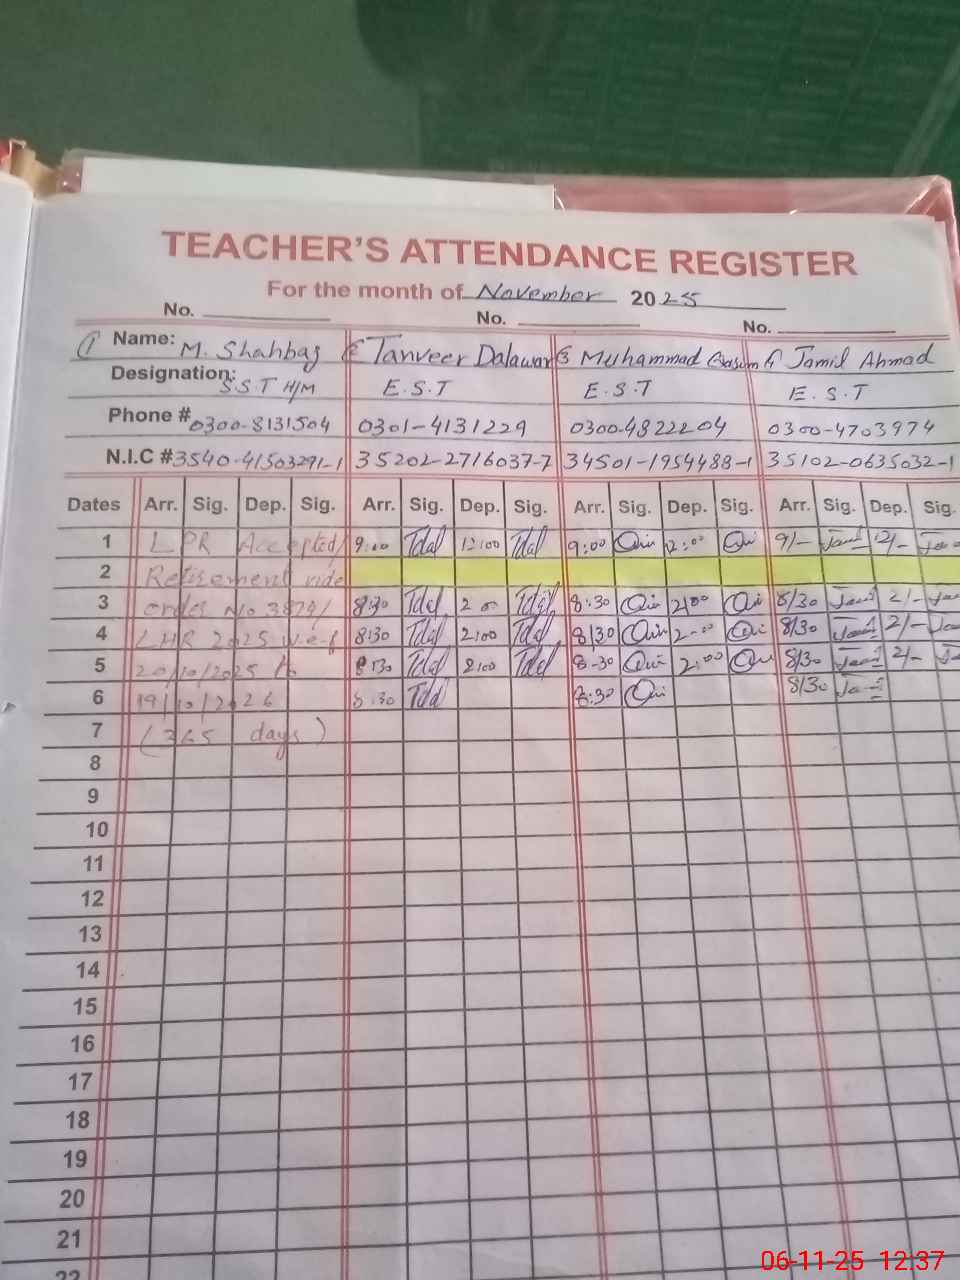 TEACHER'S ATTENDANCE REGISTER
For the month of November 2025
No. No. No.
① Name: M. Shahbaz ② Tanveer Dalawar ③ Muhammad Qasim 4 Jamil Ahmad
Designation: S.S.T H/M E.S.T E.S.T E.S.T
Phone # 0300-8131504 0301-4131229 0300-4822204 0300-4703974
N.I.C # 3540-41503291-1 35202-2716037-7 34501-1954488-1 35102-0635032-1
Dates Arr. Sig. Dep. Sig. Arr. Sig. Dep. Sig. Arr. Sig. Dep. Sig. Arr. Sig. Dep. Sig.
1 LPR Accepted/ 9:00 12:00 9:00 12:00 9/- 12/-
2 Retirement vide
3 order No 3879/ 8:30 2 00 8:30 2:00 8/30 2/-
4 LHR 2025 w.e.f 8:30 2:00 8/30 2-00 8/30 2/-
5 20/10/2025 to 8:30 2:00 8-30 2:00 8/30 2/-
6 19/10/2026 8:30 8:30 8/30
7 (365 days)
8
9
10
11
12
13
14
15
16
17
18
19
20
21
22
06-11-25 12:37